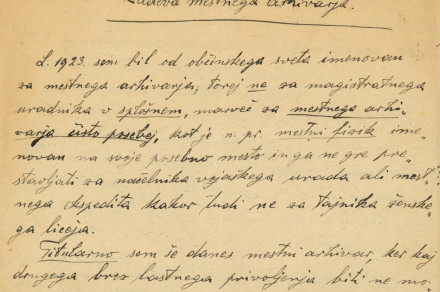 Zadeva mestnega arhivarja.
L. 1923. sem bil od občinskega sveta imenovan
za mestnega arhivarja; torej ne za magistratnega
uradnika v splošnem, marveč za mestnega arhi-
varja čisto posebej, kot je n. pr. mestni fizik ime-
novan na svoje posebno mesto in ga ne gre pre-
stavljati za načelnika vojaškega urada ali mest-
nega ekspedita kakor tudi ne za tajnika ženske-
ga liceja.
Titularno sem še danes mestni arhivar, ker kaj
drugega brez lastnega privoljenja biti ne mo-